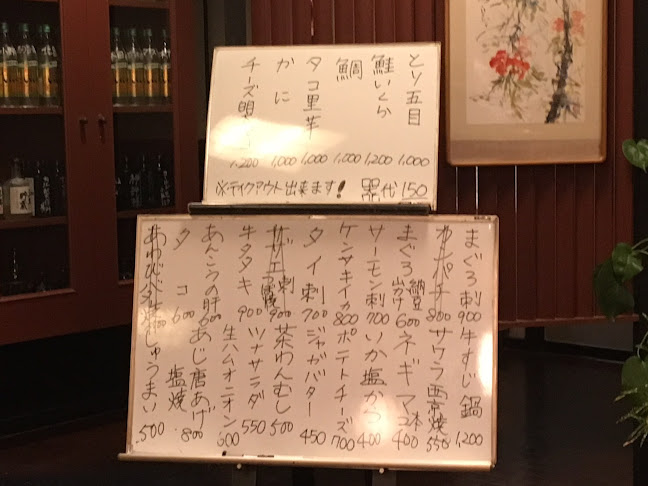 とり五目 1,000
鮭いくら 1,200
鯛 1,000
タコ里芋 1,000
かに 1,000
チーズ明 1,200
※テイクアウト出来ます! 器代 150
まぐろ刺 900
牛すじ鍋 1,200
カンパチ 800
サワラ西京焼 550
まぐろ 納豆 山かけ 600
ネギマ 2本 400
サーモン刺 700
いか塩かつ 400
ケンサキイカ 800
ポテトチーズ 700
タイ刺 700
ジャガバター 450
サザエ 刺 900
茶わんむし 500
牛タタキ 900
ツナサラダ 550
生ハムオニオン 600
あんこうの肝 600
あじ唐あげ 800
塩焼
タコ 600
しゅうまい 500